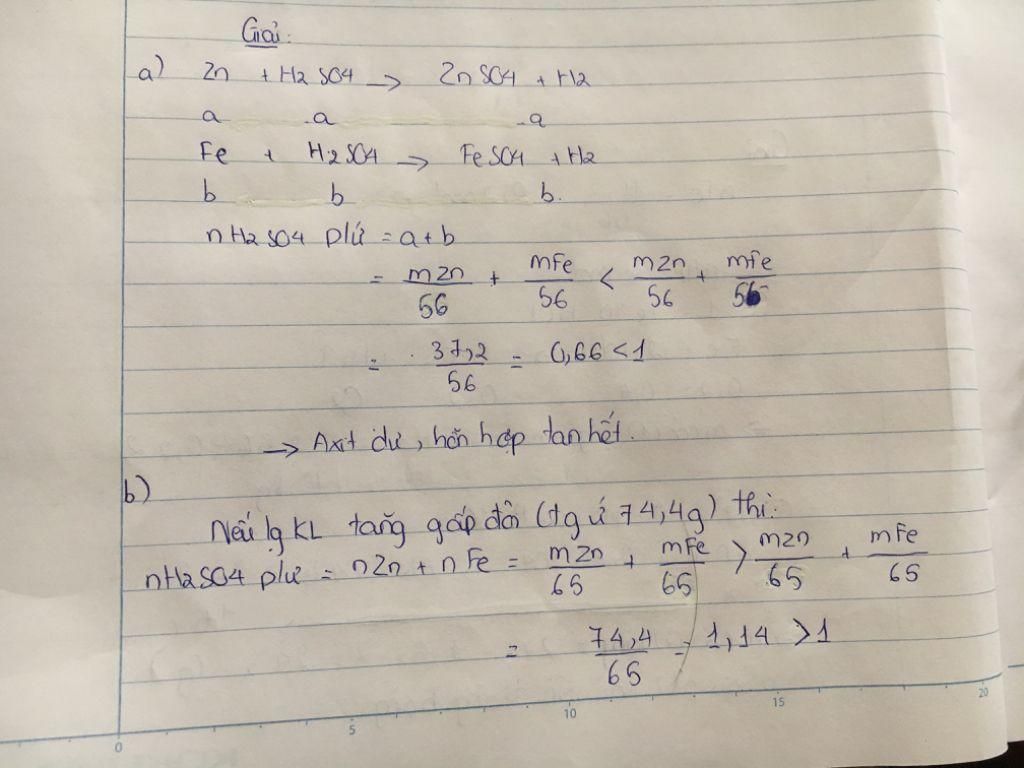 Giải:
a) Zn + H2SO4 → ZnSO4 + H2
a a a
Fe + H2SO4 → FeSO4 + H2
b b b.
nH2SO4 pứ = a+b
= mZn/56 + mFe/56 < mZn/56 + mFe/56
= 37,2/56 = 0,66 < 1
→ Axit dư, hỗn hợp tan hết.
b)
Nếu lg KL tăng gấp đôi (tg ứ 74,4g) thì:
nH2SO4 pứ = nZn + nFe = mZn/65 + mFe/65 > mZn/65 + mFe/65
= 74,4/65 = 1,14 > 1
0 5 10 15 20